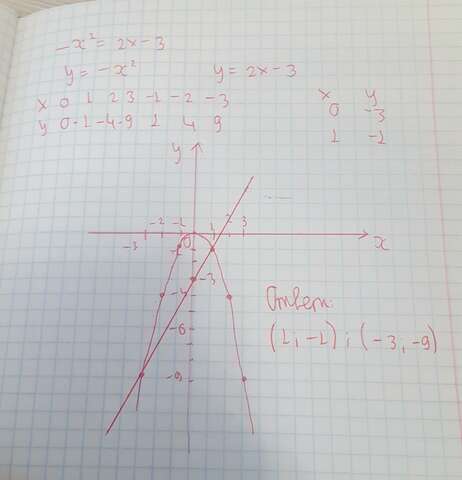 -x² = 2x - 3
y = -x² y = 2x - 3
x 0 1 2 3 -1 -2 -3
y 0 -1 -4 -9 1 4 9
x y
0 -3
1 -1
y
-3 -2 -1 0 1 2 3 x
-1
-3
-4
-6
-9
Ответ:
(1; -1); (-3; -9)